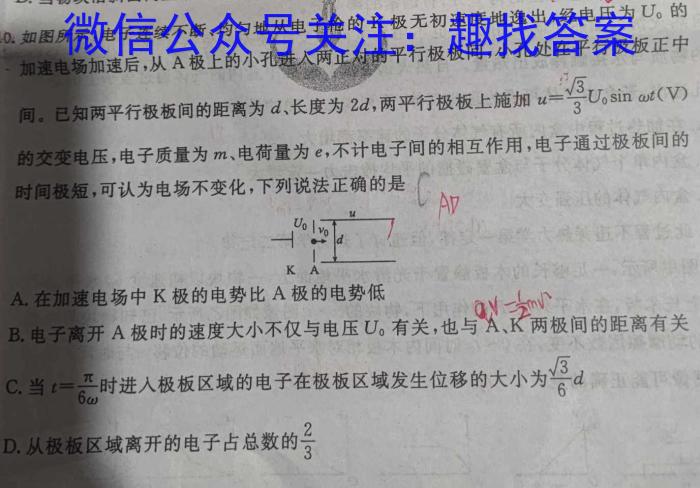 微信公众号关注：趣找答案
加速电场加速后,从 A 极上的小孔进入两正对的平行极板间,小孔处在平行极板正中
间。已知两平行极板间的距离为 d、长度为 2d,两平行极板上施加 u=√3/3 U₀sin ωt(V)
的交变电压,电子质量为 m、电荷量为 e,不计电子间的相互作用,电子通过极板间的
时间极短,可认为电场不变化,下列说法正确的是
AD
U₀ v₀ u d
K A
A. 在加速电场中 K 极的电势比 A 极的电势低
qV=½mv²
B. 电子离开 A 极时的速度大小不仅与电压 U₀ 有关,也与 A、K 两极间的距离有关
C. 当 t=π/6ω 时进入极板区域的电子在极板区域发生位移的大小为 √3/6 d
D. 从极板区域离开的电子占总数的 2/3